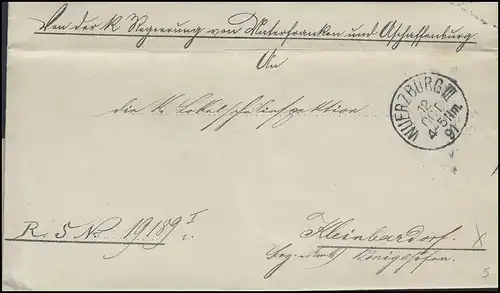 Von der K. Regierung von Unterfranken und Aschaffenburg
An
die K. Lokalschulinspektion
WUERZBURG III
12
OCT
4-5 Nm.
91
R. 5 No 19189 I
Kleinbardorf.
Bez. Amts Königshofen.
5